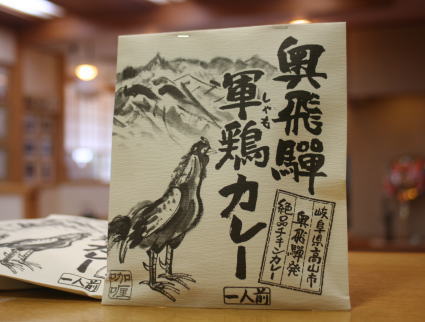 奥飛驒
軍鶏カレー
しゃも
岐阜県高山市
奥飛驒発
絶品チキンカレー
咖喱
一人前
一人前